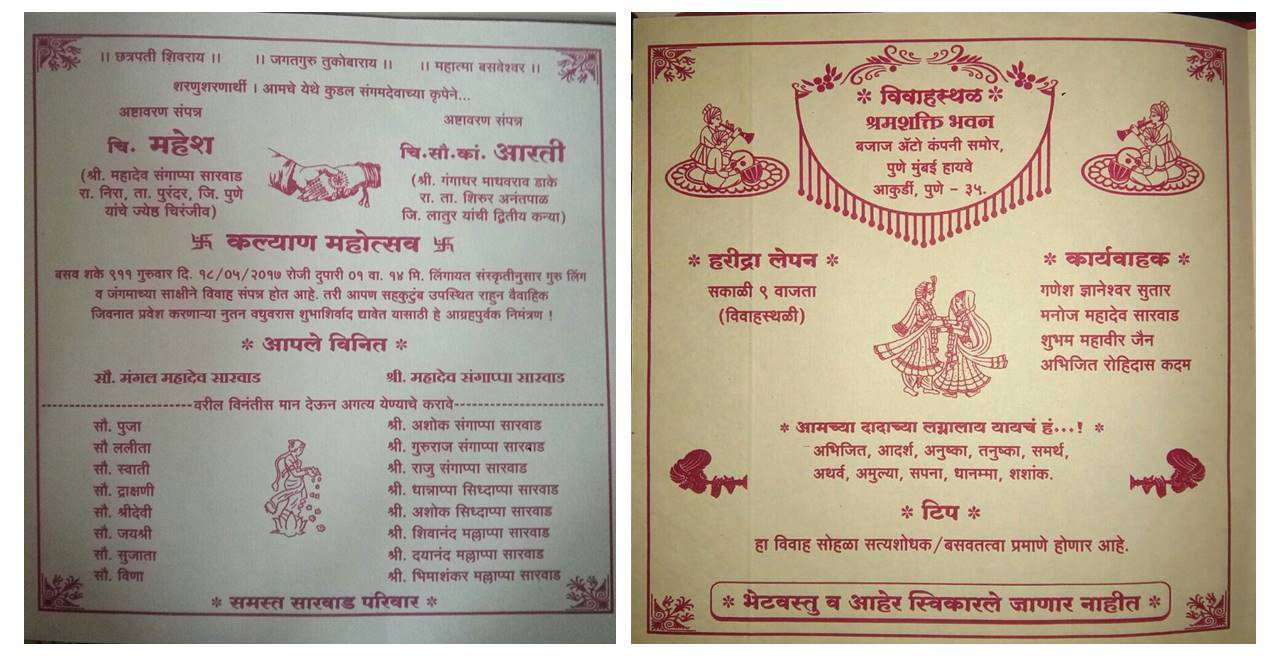 ।। छत्रपती शिवराय ।। ।। जगतगुरु तुकोबाराय ।। ।। महात्मा बसवेश्वर ।।
शरणुशरणार्थी । आमचे येथे कुडल संगमदेवाच्या कृपेने...
अष्टावरण संपन्न
चि. महेश
(श्री. महादेव संगाप्पा सारवाड
रा. निरा, ता. पुरंदर, जि. पुणे
यांचे ज्येष्ठ चिरंजीव)
अष्टावरण संपन्न
चि.सौ.कां. आरती
(श्री. गंगाधर माधवराव डाके
रा. ता. शिरुर अनंतपाळ
जि. लातुर यांची द्वितीय कन्या)
卐 कल्याण महोत्सव 卐
बसव शके ९११ गुरुवार दि. १८/०५/२०१७ रोजी दुपारी ०१ वा. १४ मि. लिंगायत संस्कृतीनुसार गुरु लिंग
व जंगमाच्या साक्षीने विवाह संपन्न होत आहे. तरी आपण सहकुटुंब उपस्थित राहुन वैवाहिक
जिवनात प्रवेश करणाऱ्या नुतन वधुवरास शुभाशिर्वाद द्यावेत यासाठी हे आग्रहपुर्वक निमंत्रण !
* आपले विनित *
सौ. मंगल महादेव सारवाड श्री. महादेव संगाप्पा सारवाड
वरील विनंतीस मान देऊन अगत्य येण्याचे करावे
सौ. पुजा श्री. अशोक संगाप्पा सारवाड
सौ ललीता श्री. गुरुराज संगाप्पा सारवाड
सौ. स्वाती श्री. राजु संगाप्पा सारवाड
सौ. द्राक्षणी श्री. धान्नाप्पा सिध्दाप्पा सारवाड
सौ. श्रीदेवी श्री. अशोक सिध्दाप्पा सारवाड
सौ. जयश्री श्री. शिवानंद मल्लाप्पा सारवाड
सौ. सुजाता श्री. दयानंद मल्लाप्पा सारवाड
सौ. विणा श्री. भिमाशंकर मल्लाप्पा सारवाड
* समस्त सारवाड परिवार *
* विवाहस्थळ *
श्रमशक्ति भवन
बजाज ॲटो कंपनी समोर,
पुणे मुंबई हायवे
आकुर्डी, पुणे - ३५.
* हरीद्रा लेपन *
सकाळी ९ वाजता
(विवाहस्थळी)
* कार्यवाहक *
गणेश ज्ञानेश्वर सुतार
मनोज महादेव सारवाड
शुभम महावीर जैन
अभिजित रोहिदास कदम
* आमच्या दादाच्या लग्नालाय यायचं हं...! *
अभिजित, आदर्श, अनुष्का, तनुष्का, समर्थ,
अथर्व, अमुल्या, सपना, धानम्मा, शशांक.
* टिप *
हा विवाह सोहळा सत्यशोधक/बसवतत्वा प्रमाणे होणार आहे.
* भेटवस्तु व आहेर स्विकारले जाणार नाहीत *